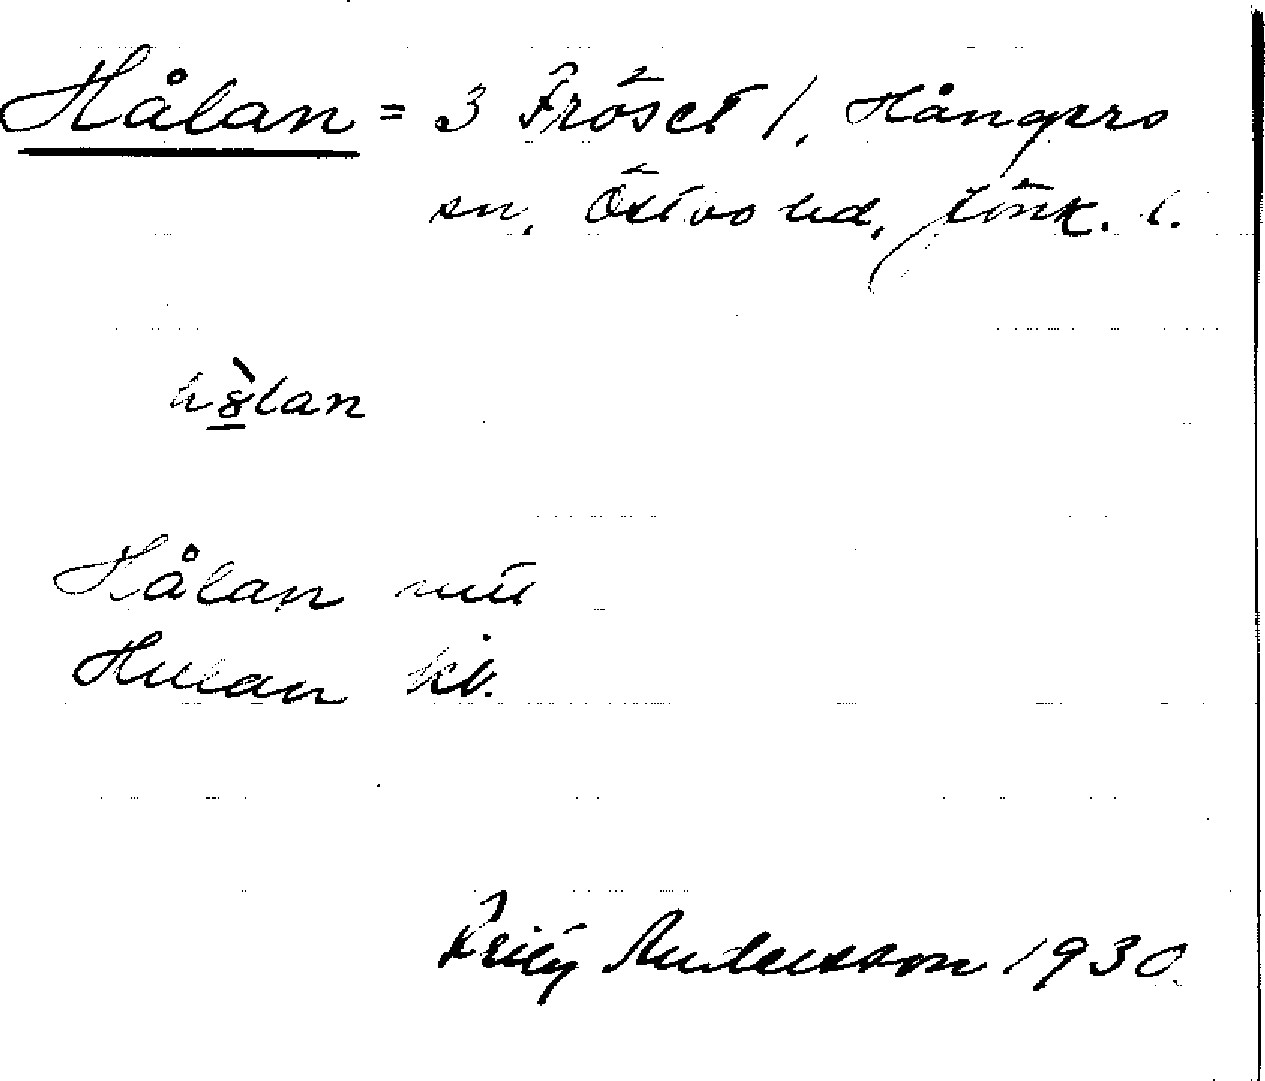 Hålan = 3 Fröset 1, Hångers
sn, Östvo hd, Jönk. l.
hø̱̀lan
Hålan
Hulan kb.
Andersson 1930.